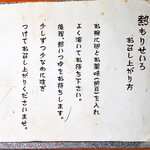 熱もりせいろ
お召し上がり方
お椀に卵とお薬味(前豆)を入れ
よく溶いてお待ち下さい。
後程、熱いつゆをお持ちします。
少しずつ少なめに注ぎ
つけてお召し上がりくださいませ。